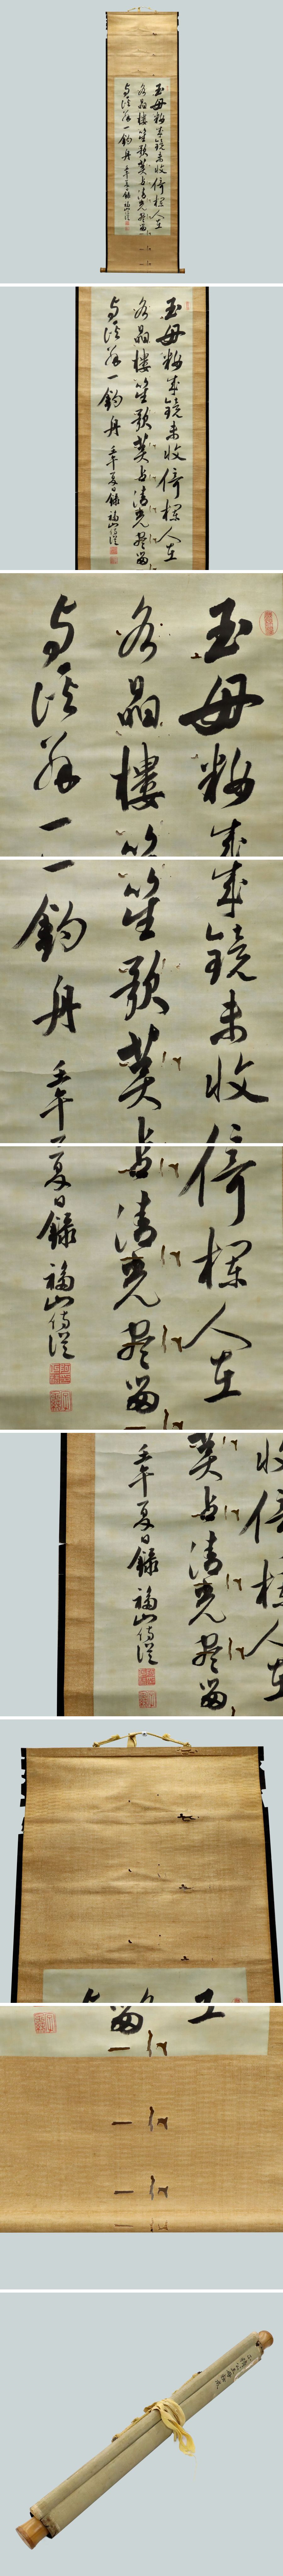 玉母粧成鏡未收倚欄人在
水晶樓笙歌莫占清光盡留
与溪翁一釣舟
壬午夏日録 福山侍從